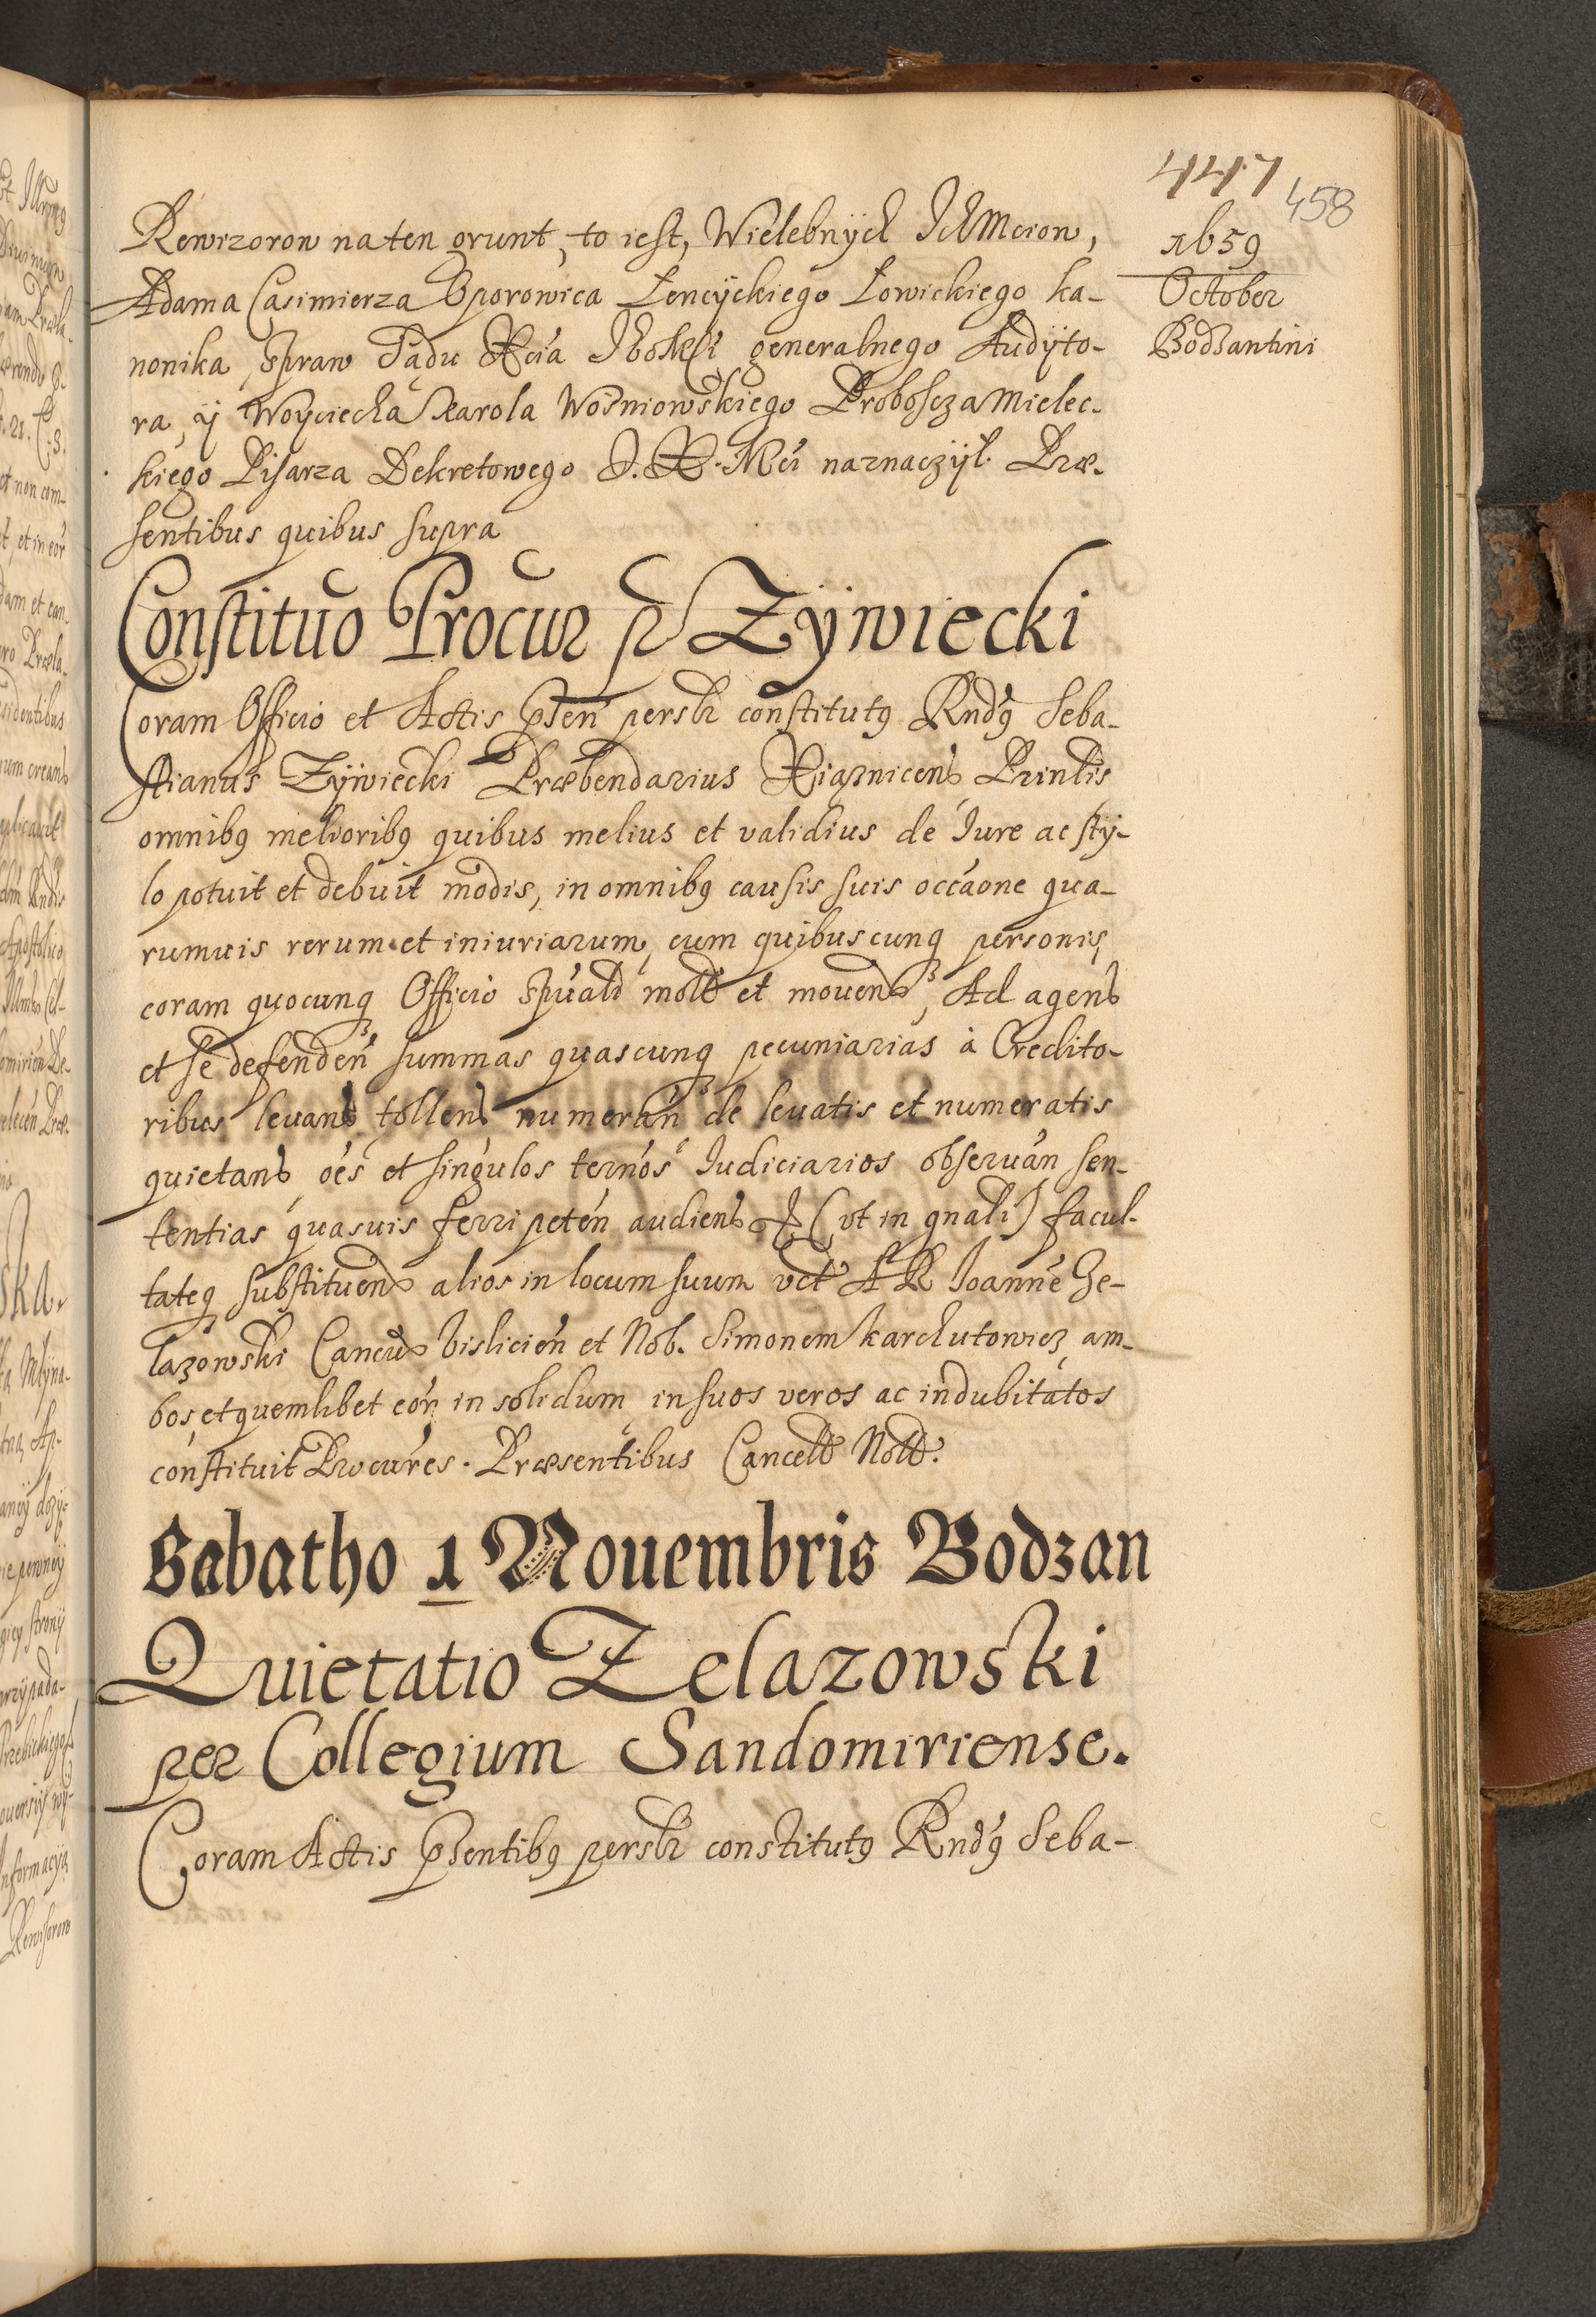 447
458
1659
October
Bodzantini
Rewizorow na ten grunt, to iest, Wielebnÿch IchMciow,
Adama Casimierza Oporowica Łencÿckiego Łowickiego ka-
nonika, Spraw Sądu Xcia generalnego Audÿto-
ra, ÿ Woÿciecha Karola Wośniowskiego Proboscza Mielec-
kiego Pisarza Dekretowego J. X. Mci naznaczÿł. Præ-
sentibus quibus supra
Constituo Procur Zÿwiecki
Coram Officio et Actis psen persłr constitutq Rndq Seba-
stianus Zÿwiecki Præbendarius Xiąznicens Prinłis
omnibq melioribq quibus melius et validius de Iure ac stÿ-
lo potuit et debuit modis, in omnibq causis suis occaone qua-
rumvis rerum et iniuriarum, cum quibuscunq personis,
coram quocunq Officio spuald mołt et mouend, Ad agend
et se defenden summas quascunq pecuniarias à Credito-
ribus leuand tollend numeran de leuatis et numeratis
quietand oes et singulos ternos Iudiciarios obseruan sen-
tentias quasuis ferri peten audiend & (vt in gnali) facul-
tateq substituend alios in locum suum vdt AR Ioanne Ze-
lazowski Cancus Vislicien et Nob. Simonem Karchutowicz am-
bos, et quemlibet eor in solidum, in suos veros ac indubitatos
constituit Procures. Præsentibus Cancell Nott.
Sabatho 1 Nouembris Bodzan
Quietatio Zelazowski
per Collegium Sandomiriense.
Coram Actis psentibq persłr constitutq Rndq Seba-